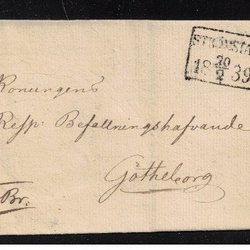 STRÖMSTAD
20
18 2 39
Konungens
Resp: Befallningshafvande
Götheborg
Br.